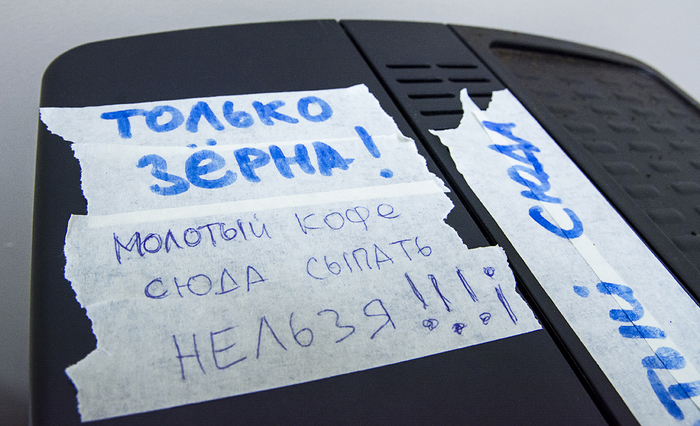 ТОЛЬКО
ЗЁРНА!
МОЛОТЫЙ КОФЕ
СЮДА СЫПАТЬ
НЕЛЬЗЯ!!!¡
СЮДА
ТЫЙ